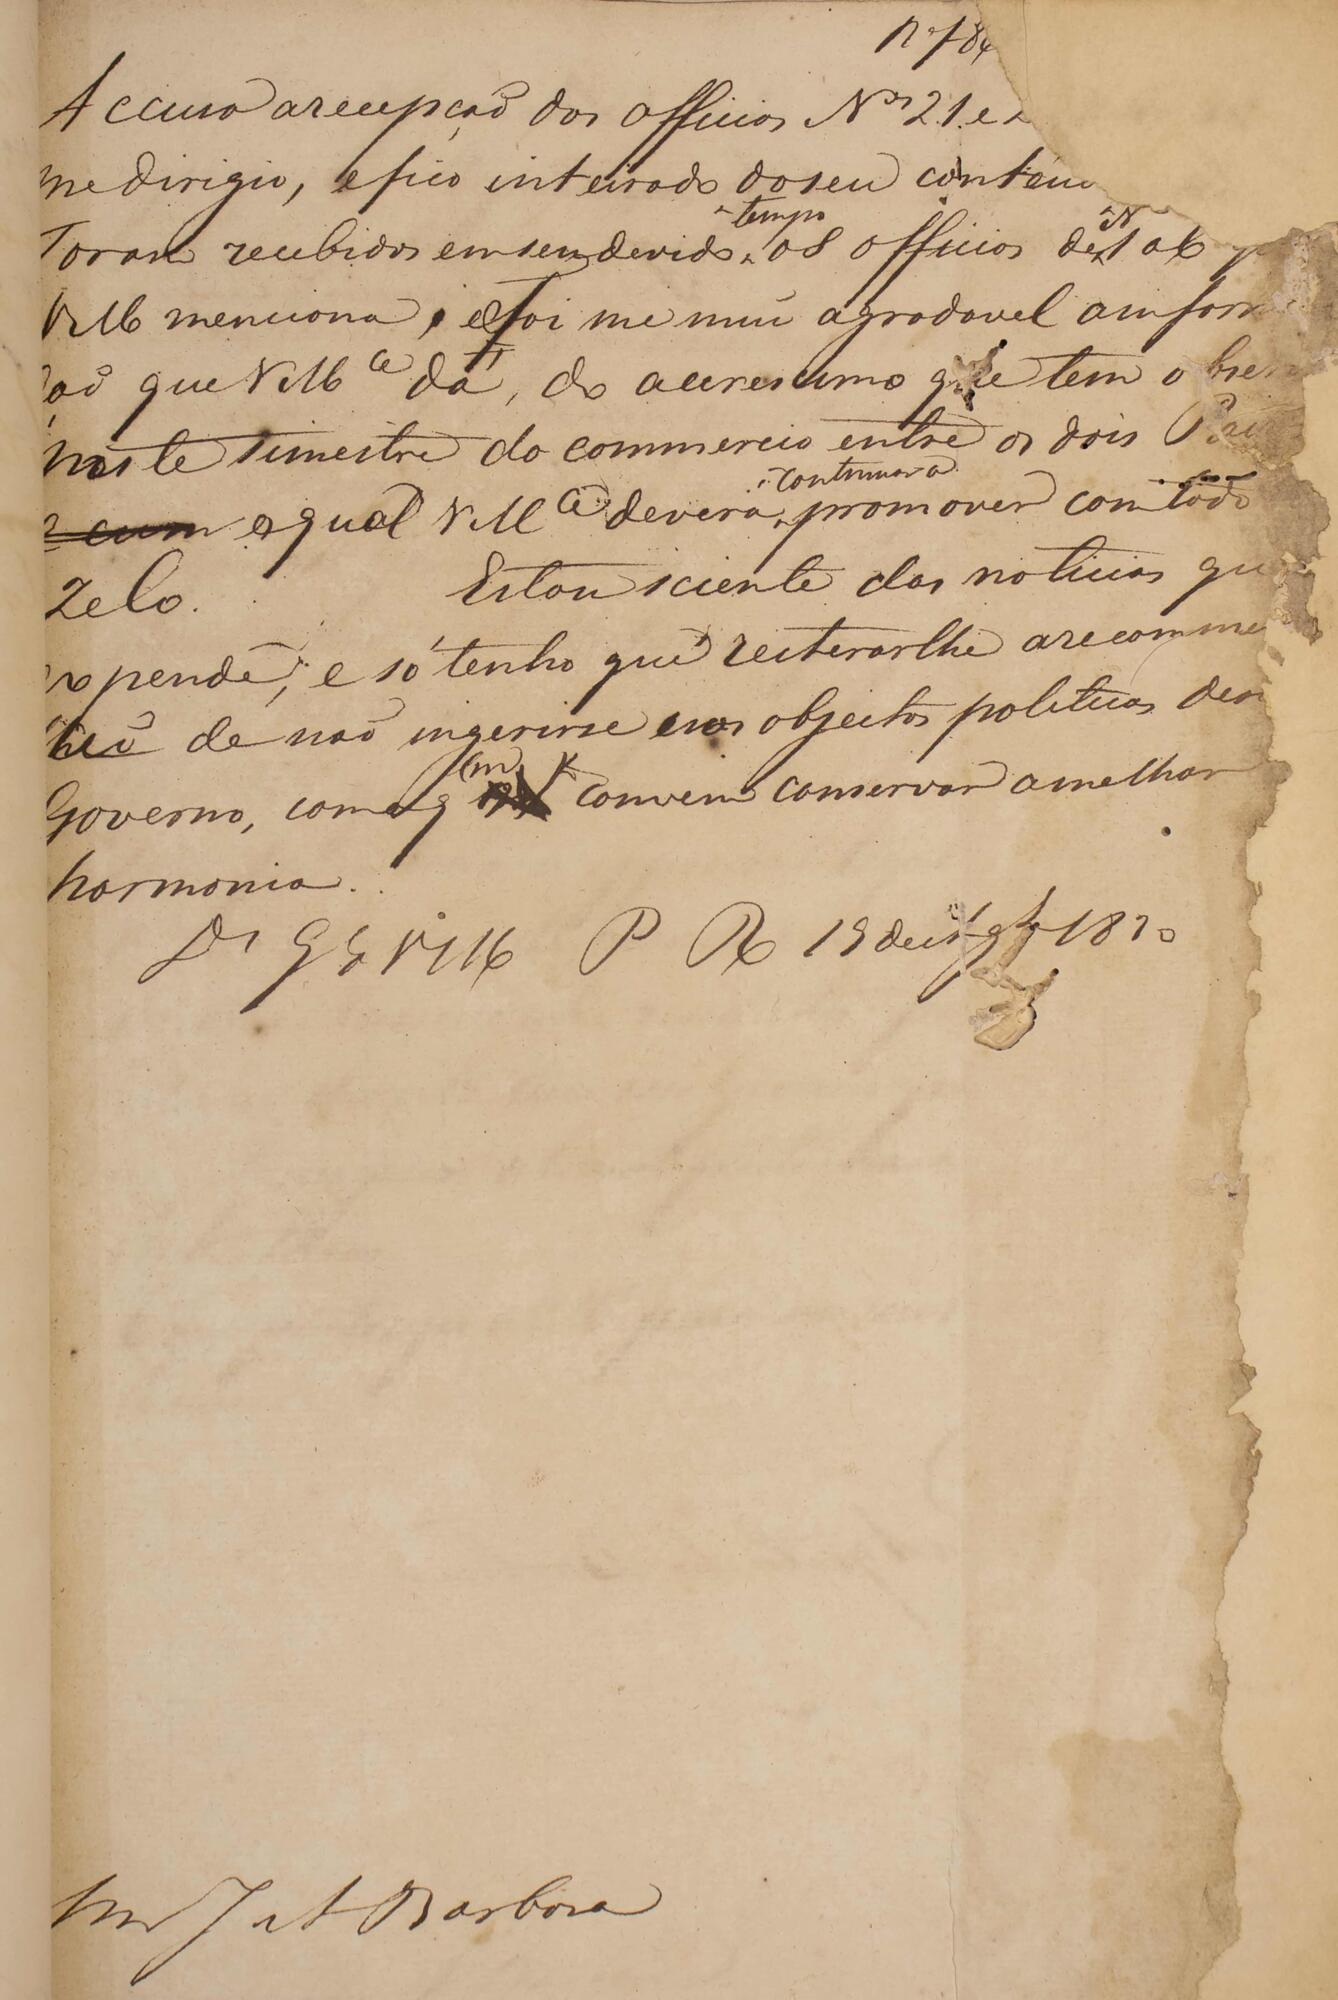 Accuso a recepçaõ dos officios Nos 21 e
me dirigio, e fico inteirado do seu
Foraõ recebidos em seu devido tempo os officios de N 1 a 6
V.M. menciona, e foi me mui agradavel a infor
çaõ que V.M.ce dá, do accrescimo que tem
neste simestre do commercio entre os dois
cum o qual V.M.ce deverá continuar a promover com todo
zelo. Estou sciente das noticias que
expende, e só tenho que reiterarlhe a recomme
de naõ ingerirse nos objectos politicos
Governo, com q m convem conservar a melhor
harmonia.
Ds Ge V.M. P R 19 de 1830
Snr J A Barbosa